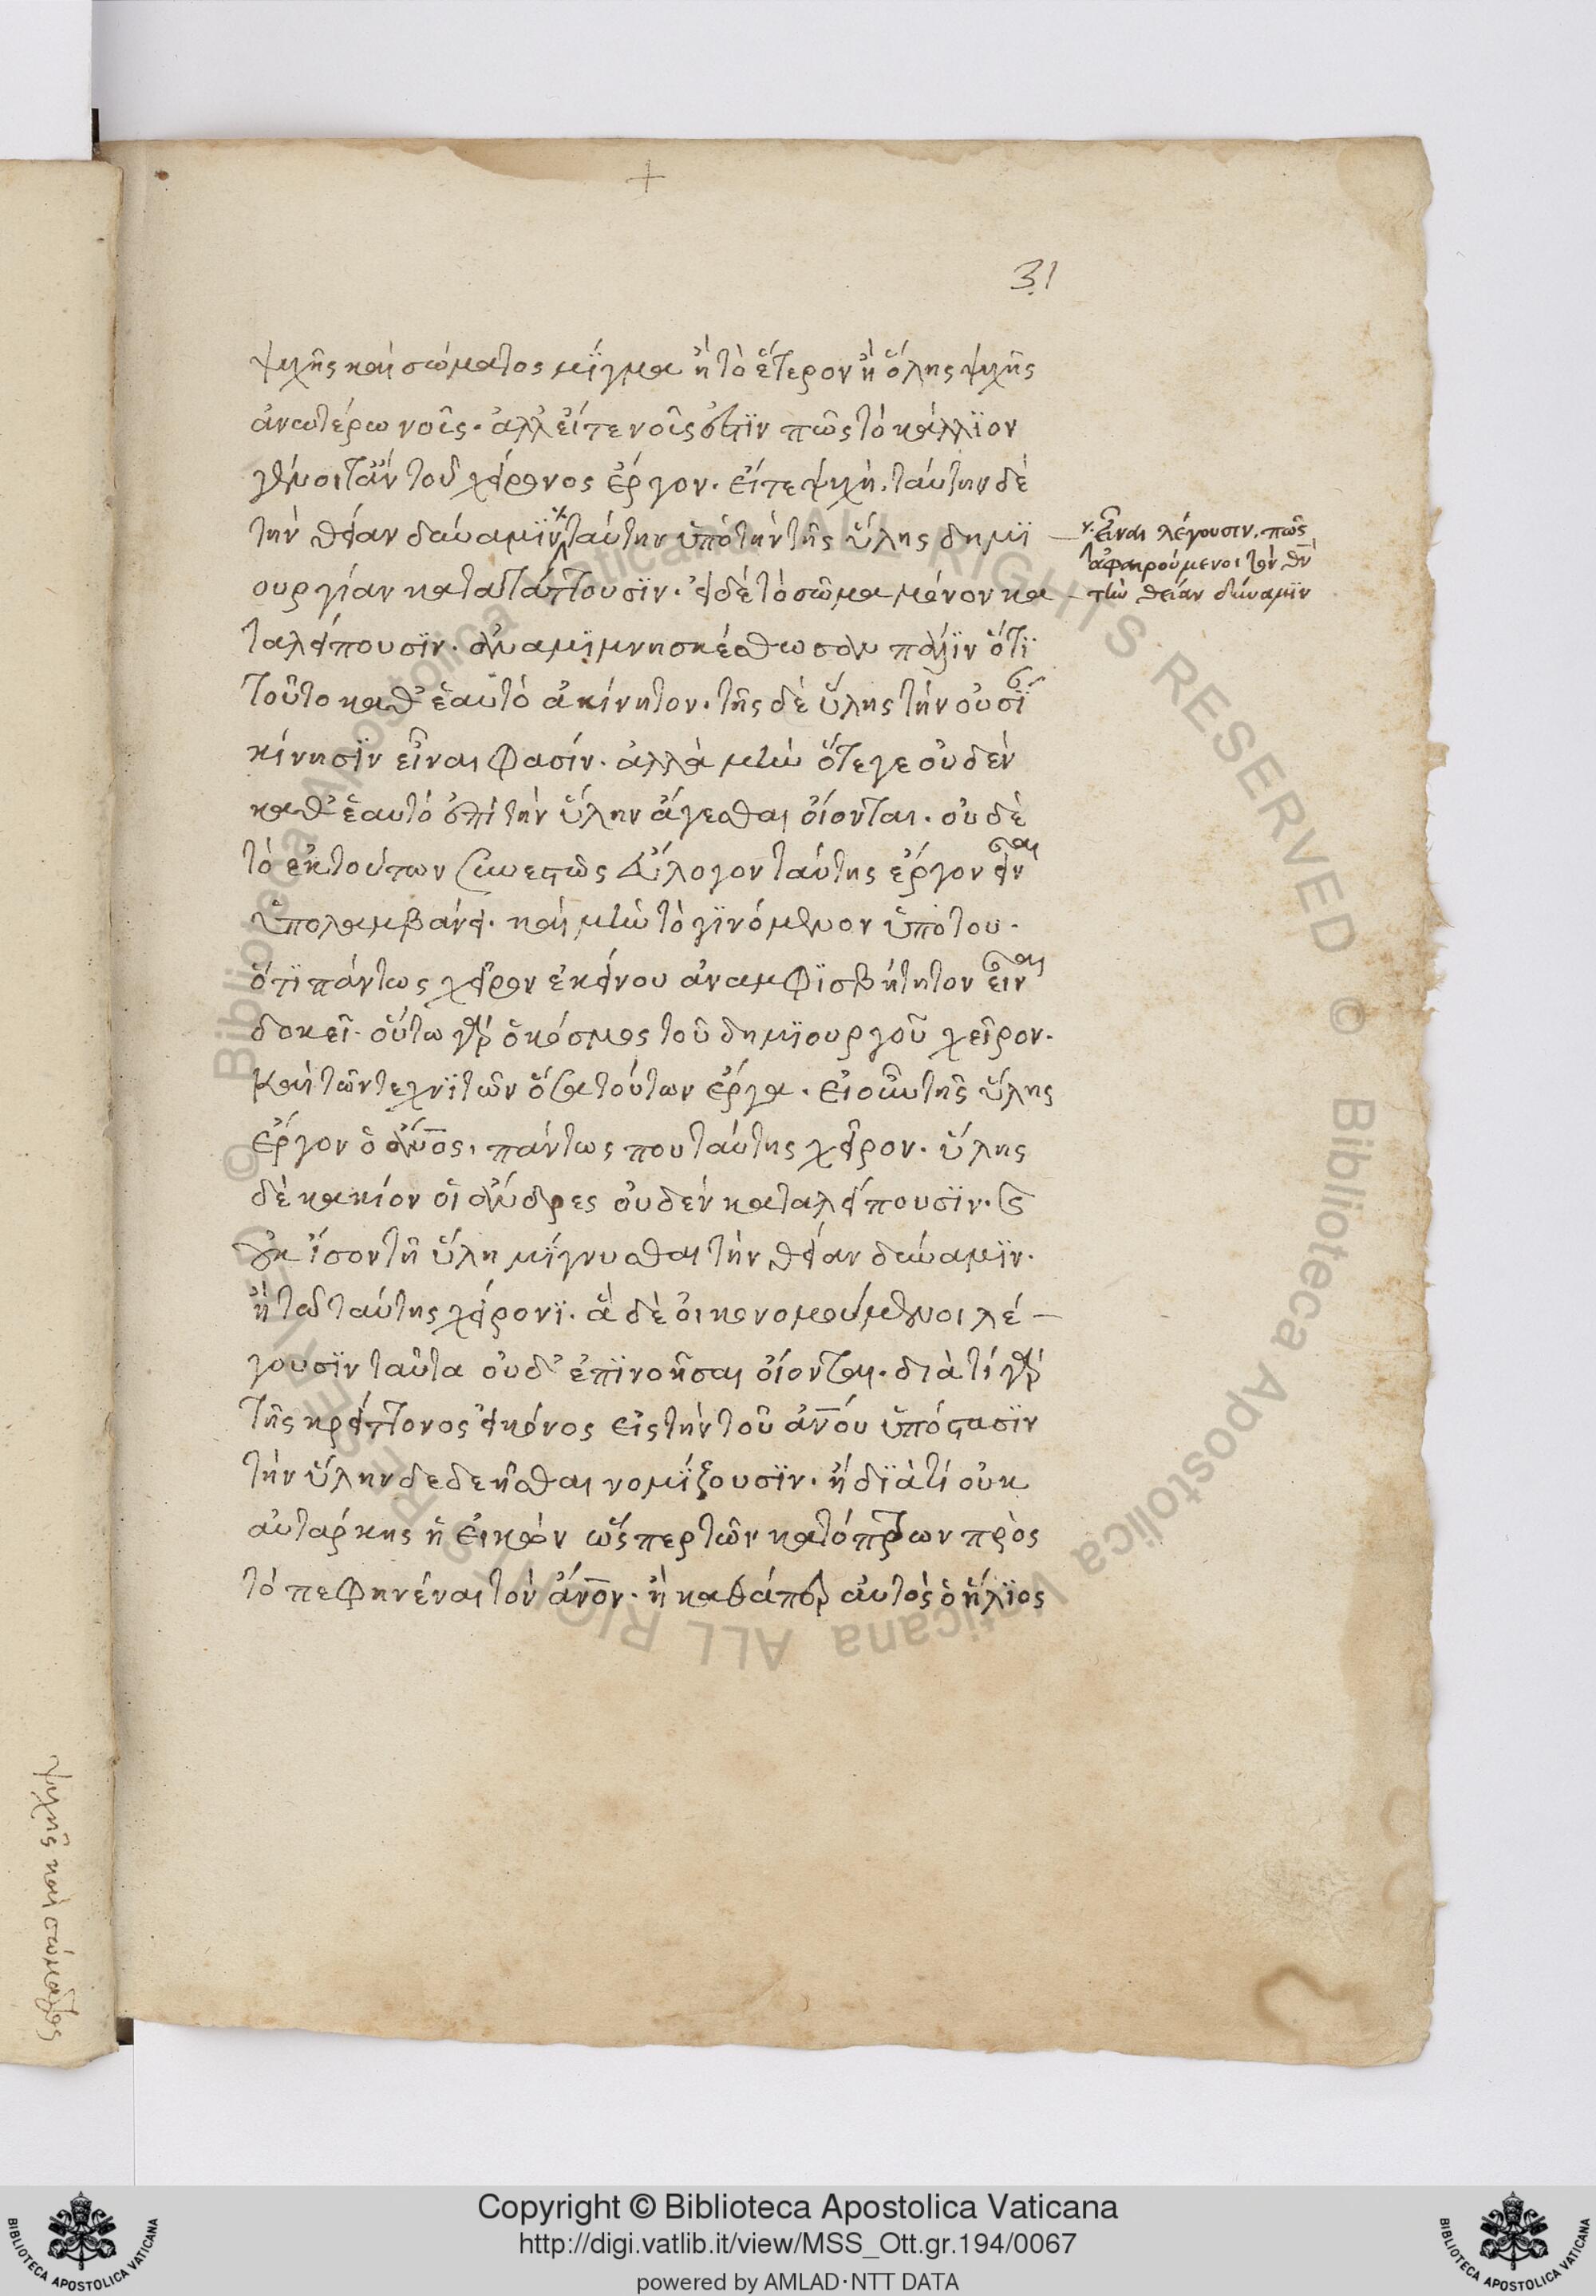 +
31
ψυχῆς καὶ σώματος μΐγμα ἢ τὸ ἕτερον ἢ ὅλης ψυχῆς
ἀνωτέρω νοῦς. ἀλλ' εἴτε νοῦς ἐστϊν πῶς τὸ κάλλϊον
γένοιτ' ἂν τοῦ χείρονος ἔργον. εἴτε ψυχὴ. ταύτην δὲ
τὴν θείαν δύναμϊν ταύτην ὑπὸ τὴν τῆς ὕλης δημϊ
ουργίαν κατατάττουσϊν. εἰ δὲ τὸ σῶμα μόνον κα
ταλείπουσϊν. ἀναμϊμνησκέσθωσαν πάλϊν ὅτϊ
τοῦτο καθ' ἑαυτὸ ἀκίνητον. τῆς δὲ ὕλης τὴν οὐσϊ
κίνησϊν εἶναι φασίν. ἀλλὰ μὴν ὅτε γε οὐδὲν
καθ' ἑαυτὸ ἐπὶ τὴν ὕλην ἄγεσθαι οἴονται. οὐδὲ
τὸ ἐκ τούτων συνεστὼς εὔλογον ταύτης ἔργον εἶναι
ὑπολαμβάνειν. καὶ μὴν τὸ γϊνόμενον ὑπό του.
ὅτϊ πάντως χεῖρον ἐκείνου ἀναμφϊσβήτητον εἶναι
δοκεῖ. οὕτω γὰρ ὁ κόσμος τοῦ δημϊουργοῦ χεῖρον.
καὶ τῶν τεχνϊτῶν ὅσα τούτων ἔργα. εἰ οὖν τῆς ὕλης
ἔργον ὁ ἄνος. πάντως που ταύτης χεῖρον. ὕλης
δὲ κακίον οἱ ἄνδρες οὐδὲν καταλείπουσϊν.
οὐκ ἴσον τῆ ὕλη μΐγνυσθαι τὴν θείαν δύναμϊν.
ἢ τῶ ταύτης χείρονϊ. ἃ δὲ οἰκονομούμενοι λέ
γουσϊν ταῦτα οὐδ' ἐπϊνοῆσαι οἴονται. διὰ τί γὰρ
τῆς κρείττονος εἰκόνος εἰς τὴν τοῦ ἀνου ὑπόστασϊν
τὴν ὕλην δεδεῆσθαι νομΐζουσϊν. ἢ δϊὰ τί οὐκ
αὐτάρκης ἡ εἰκὼν ὥσπερ τῶν κατόπτρων πρὸς
τὸ πεφηνέναι τὸν ἄνον. ἢ καθάπερ αὐτὸς ὁ ἥλϊος
εἶναι λέγουσιν. πῶς
ἀφαιρούμενοι τὸν θν
τὴν θείαν δύναμϊν
ψυχῆς καὶ σώματος
Copyright © Biblioteca Apostolica Vaticana
http://digi.vatlib.it/view/MSS_Ott.gr.194/0067
powered by AMLAD·NTT DATA
BIBLIOTECA APOSTOLICA VATICANA
BIBLIOTECA APOSTOLICA VATICANA
© Biblioteca Apostolica Vaticana ALL RIGHTS RESERVED
© Biblioteca Apostolica Vaticana ALL RIGHTS RESERVED